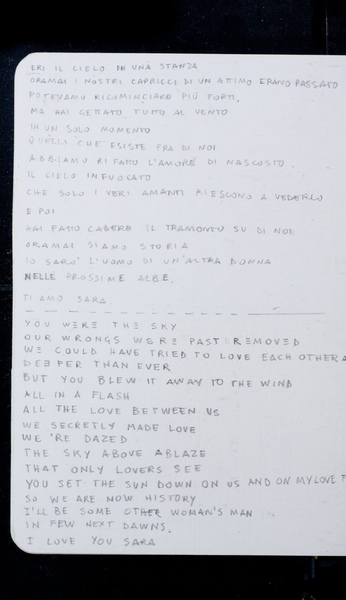 ERI IL CIELO IN UNA STANZA
ORAMAI I NOSTRI CAPRICCI DI UN ATTIMO ERANO PASSATO
POTEVAMO RICOMINCIARE PIÙ FORTI,
MA HAI GETTATO TUTTO AL VENTO
IN UN SOLO MOMENTO
QUELLO CHE ESISTE FRA DI NOI
ABBIAMO RIFATTO L'AMORE DI NASCOSTO.
IL CIELO INFUOCATO
CHE SOLO I VERI AMANTI RIESCONO A VEDERLO
E POI
HAI FATTO CADERE IL TRAMONTO SU DI NOI
ORAMAI SIAMO STORIA
IO SARO' L'UOMO DI UN'ALTRA DONNA
NELLE PROSSIME ALBE.
TI AMO SARA.
YOU WERE THE SKY
OUR WRONGS WERE PAST REMOVED
WE COULD HAVE TRIED TO LOVE EACH OTHER A
DEEPER THAN EVER
BUT YOU BLEW IT AWAY TO THE WIND
ALL IN A FLASH
ALL THE LOVE BETWEEN US
WE SECRETLY MADE LOVE
WE'RE DAZED
THE SKY ABOVE ABLAZE
THAT ONLY LOVERS SEE
YOU SET THE SUN DOWN ON US AND ON MY LOVE
SO WE ARE NOW HISTORY
I'LL BE SOME OTHER WOMAN'S MAN
IN FEW NEXT DAWNS.
I LOVE YOU SARA